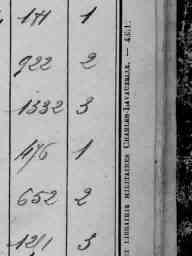 922 2
1332 3
476 1
652 2
LIBRAIRIE MILITAIRES CHARLES-LAVAUZELLE. — 4361.